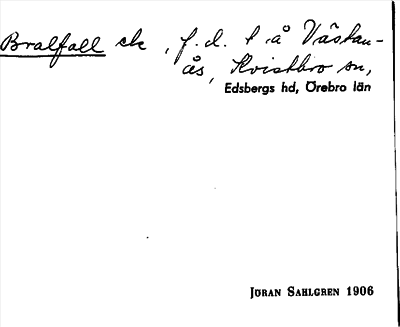 Bralfall ek, f.d. t å Västan-
ås, Kvistbro sn,
Edsbergs hd, Örebro län
JÖRAN SAHLGREN 1906